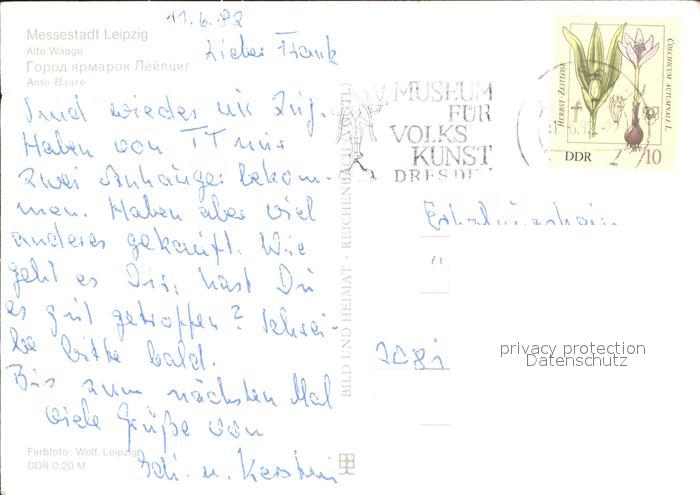 Messestadt Leipzig
Alte Waage
Город ярмарок Лейпциг
Алте Вааге
11.6.82
Lieber Frank
Sind wieder im Zug.
Haben von TT nur
zwei Anhänger bekom-
men. Haben aber viel
anderes gekauft. Wie
geht es Dir, hast Du
es gut getroffen? Schrei-
be bitte bald.
Bis zum nächsten Mal
viele Grüße von
u. Kerstin
Farbfoto: Wolf, Leipzig
DDR 0,20 M
BILD UND HEIMAT · REICHENBACH (VOGTL)
MUSEUM
FÜR
VOLKS
KUNST
DRESDEN
HERBST-ZEITLOSE
COLCHICUM AUTUMNALE L.
DDR 10
1982
"
privacy protection
Datenschutz